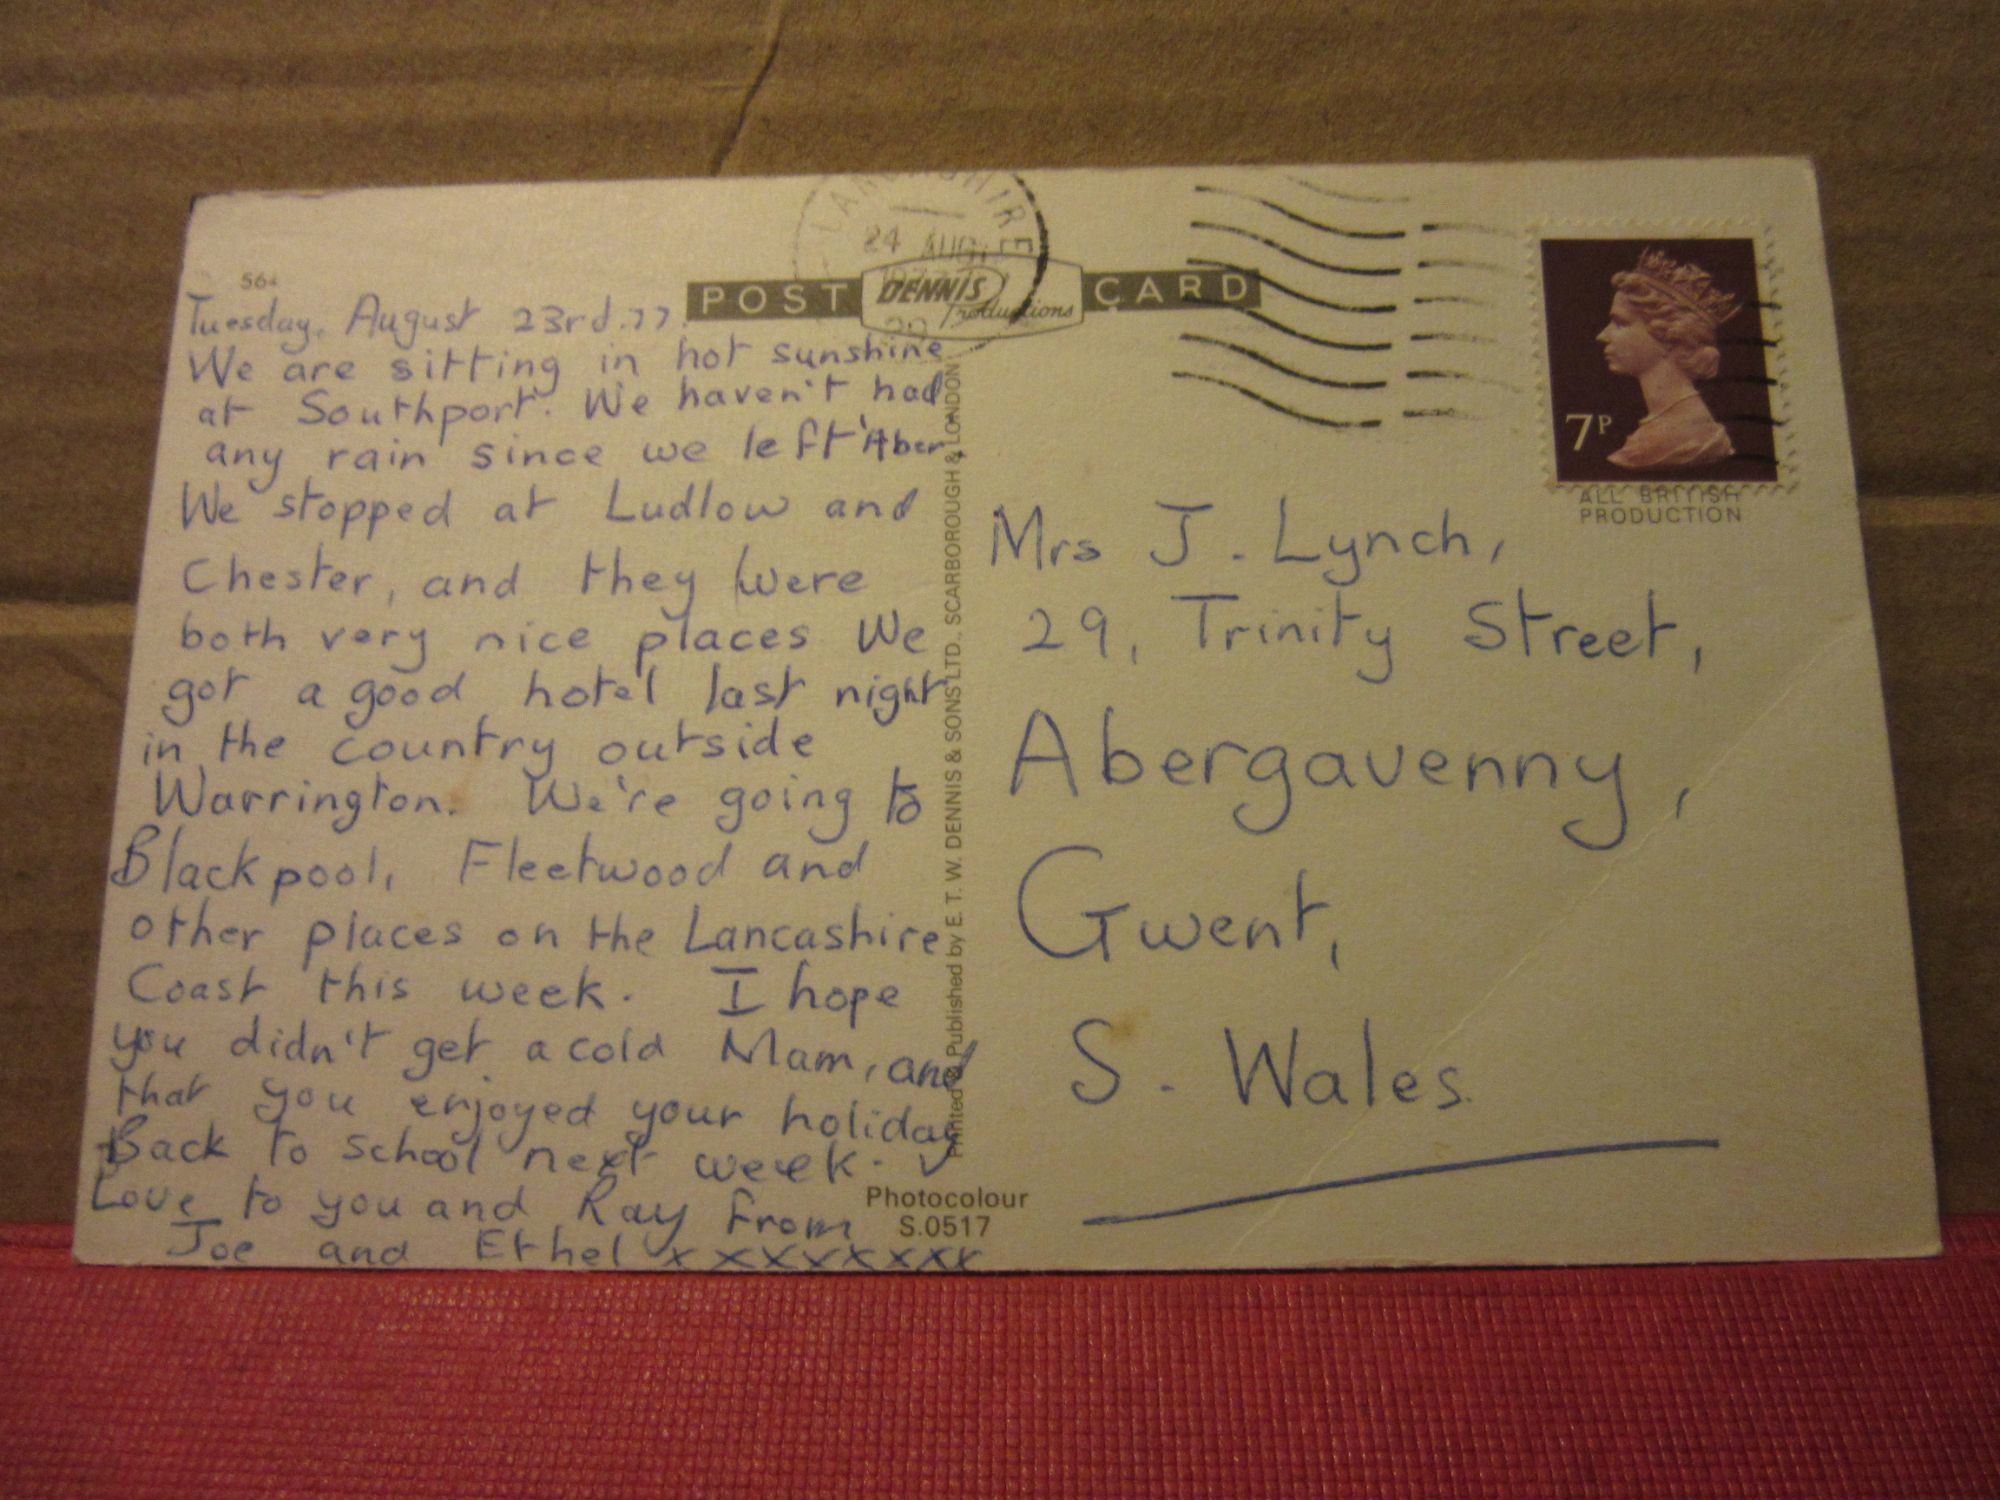 564
POST CARD
DENNIS
Productions
LANCASHIRE
24 AUG
Tuesday, August 23rd.77.
We are sitting in hot sunshine
at Southport. We haven't had
any rain since we left 'Aber.
We stopped at Ludlow and
Chester, and they were
both very nice places We
got a good hotel last night
in the country outside
Warrington. We're going to
Blackpool, Fleetwood and
other places on the Lancashire
Coast this week. I hope
you didn't get a cold Mam, and
that you enjoyed your holiday
Back to school next week.
Love to you and Ray from
Joe and Ethel x x x x x x x x
Printed & Published by E. T. W. DENNIS & SONS LTD., SCARBOROUGH & LONDON
Photocolour
S.0517
7P
ALL BRITISH
PRODUCTION
Mrs J. Lynch,
29, Trinity Street,
Abergavenny,
Gwent,
S. Wales.